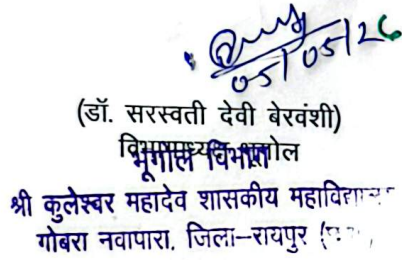 05/05/26
(डॉ. सरस्वती देवी बेरवंशी)
विभागाध्यक्ष भूगोल
भूगोल विभाग
श्री कुलेश्वर महादेव शासकीय
गोबरा नवापारा, जिला–रायपुर